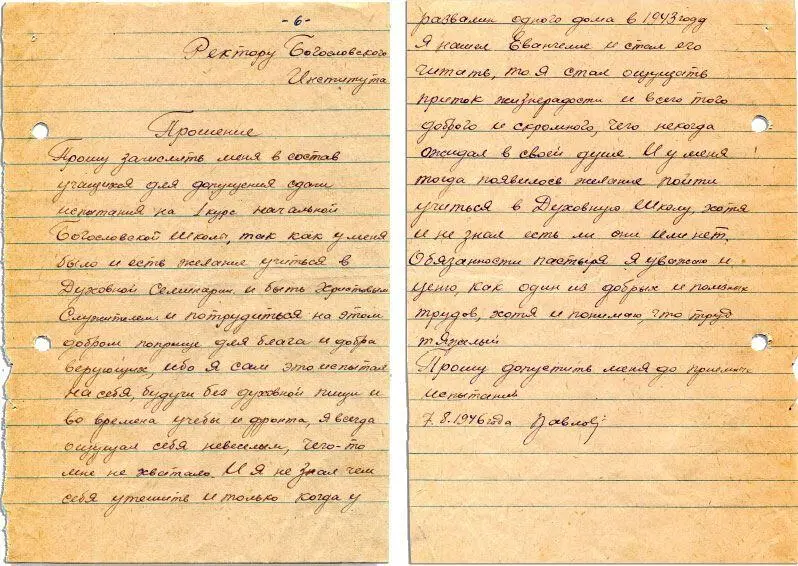 -6-
Ректору Богословского
Института
Прошение
Прошу зачислить меня в состав
учащихся для допущения сдачи
испытания на 1 курс начальной
Богословской Школы, так как у меня
было и есть желание учиться в
Духовной Семинарии и быть Христовым
Служителем и потрудиться на этом
добром поприще для блага и добра
верующих, ибо я сам это испытал
на себя, будучи без духовной пищи и
во времена учебы и фронта, я всегда
ощущал себя невеселым, чего-то
мне не хватало. И я не знал чем
себя утешить и только когда у
развалин одного дома в 1943 году
Я нашел Евангелие и стал его
читать, то я стал ощущать
приток жизнерадости и всего того
доброго и скромного, чего некогда
ожидал в своей душе. И у меня
тогда появилось желание пойти
учиться в Духовную Школу, хотя
и не знал есть ли они или нет.
Обязанности пастыря Я уважаю и
ценю, как один из добрых и полезных
трудов, хотя и понимаю, что труд
тяжелый
Прошу допустить меня до приемных
испытаний
7.8.1946 года Павлов